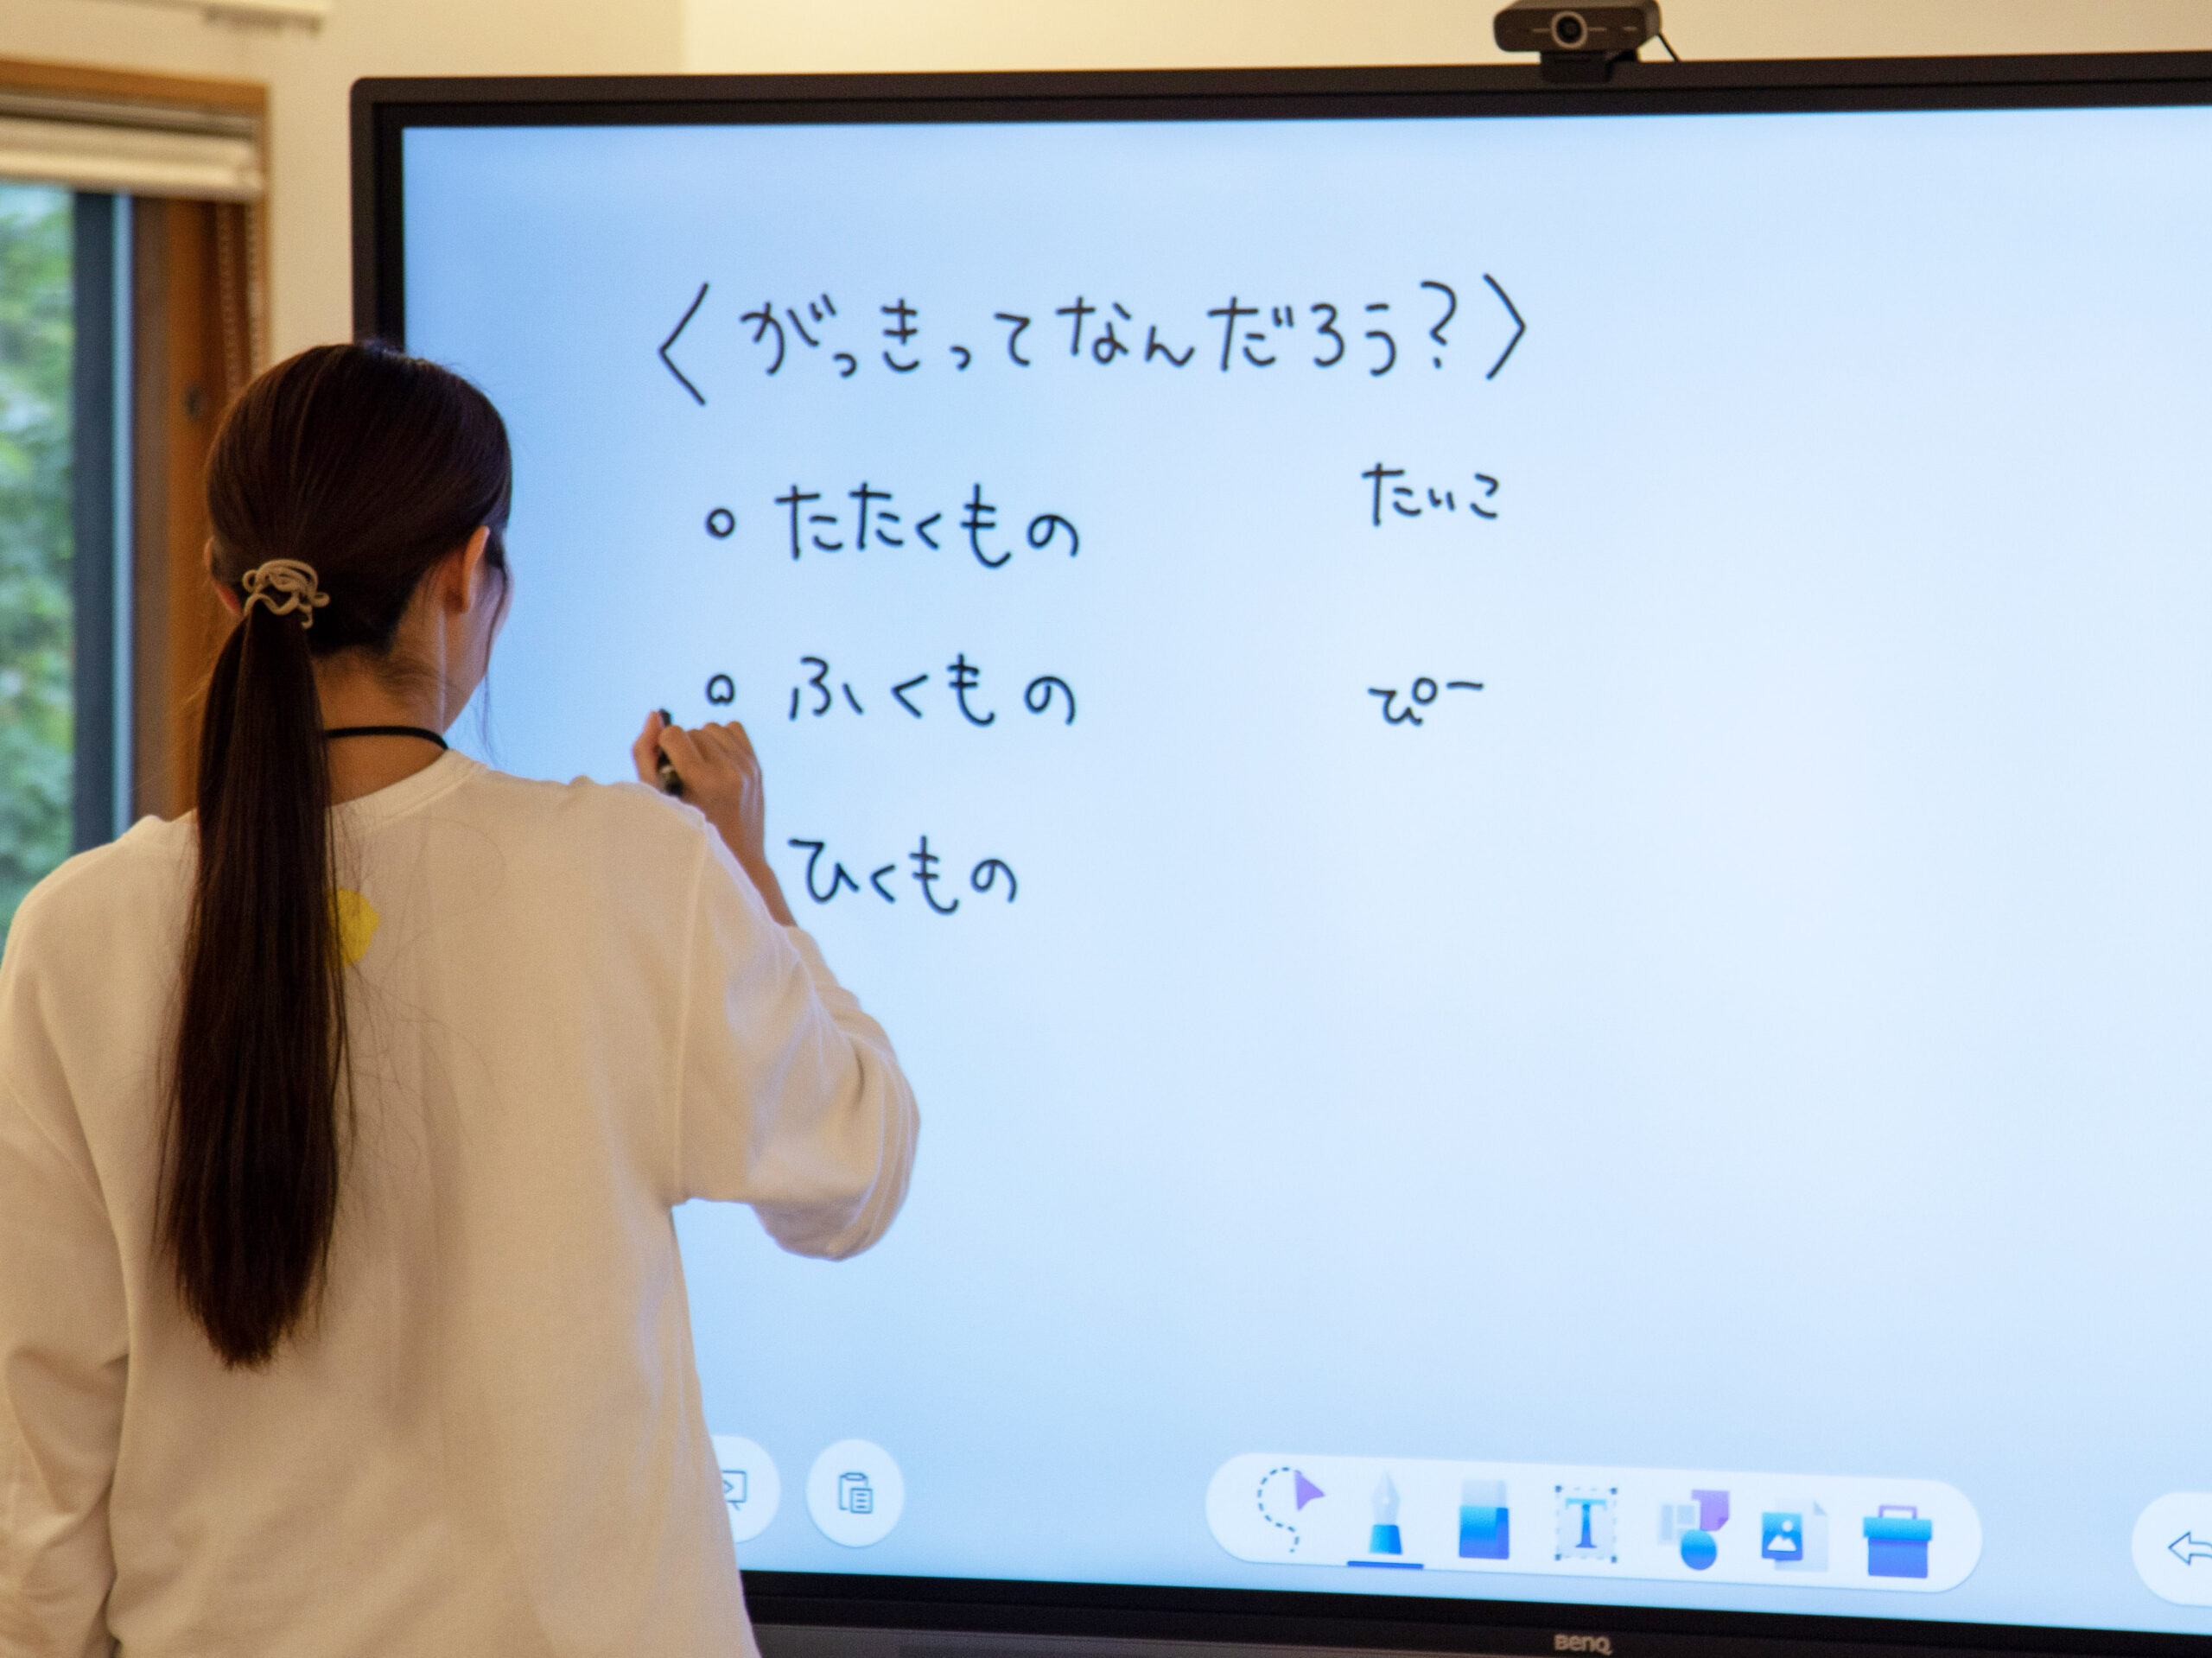 〈がっきってなんだろう？〉
○ たたくもの たいこ
○ ふくもの ぴー
ひくもの
T
BenQ